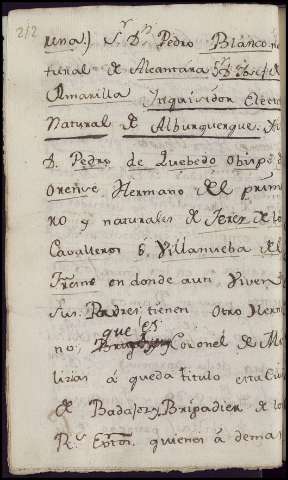 212
rena.) S.r D.n Pedro Blanco, na
tural de Alcantara
Amarilla Inquisidor Electo
Natural de Alburquerque.
D. Pedro de Quebedo obispo de
Orense Hermano del prim
ro y naturales de Jerez de los
Cavalleros ó Villanueba del
Fresno en donde aun viven
sus Padres tienen otro Herm
no, que es Coronel de Mi
lizias á queda titulo
de Badajoz, Brigadier de lo
R.s quienes á demas